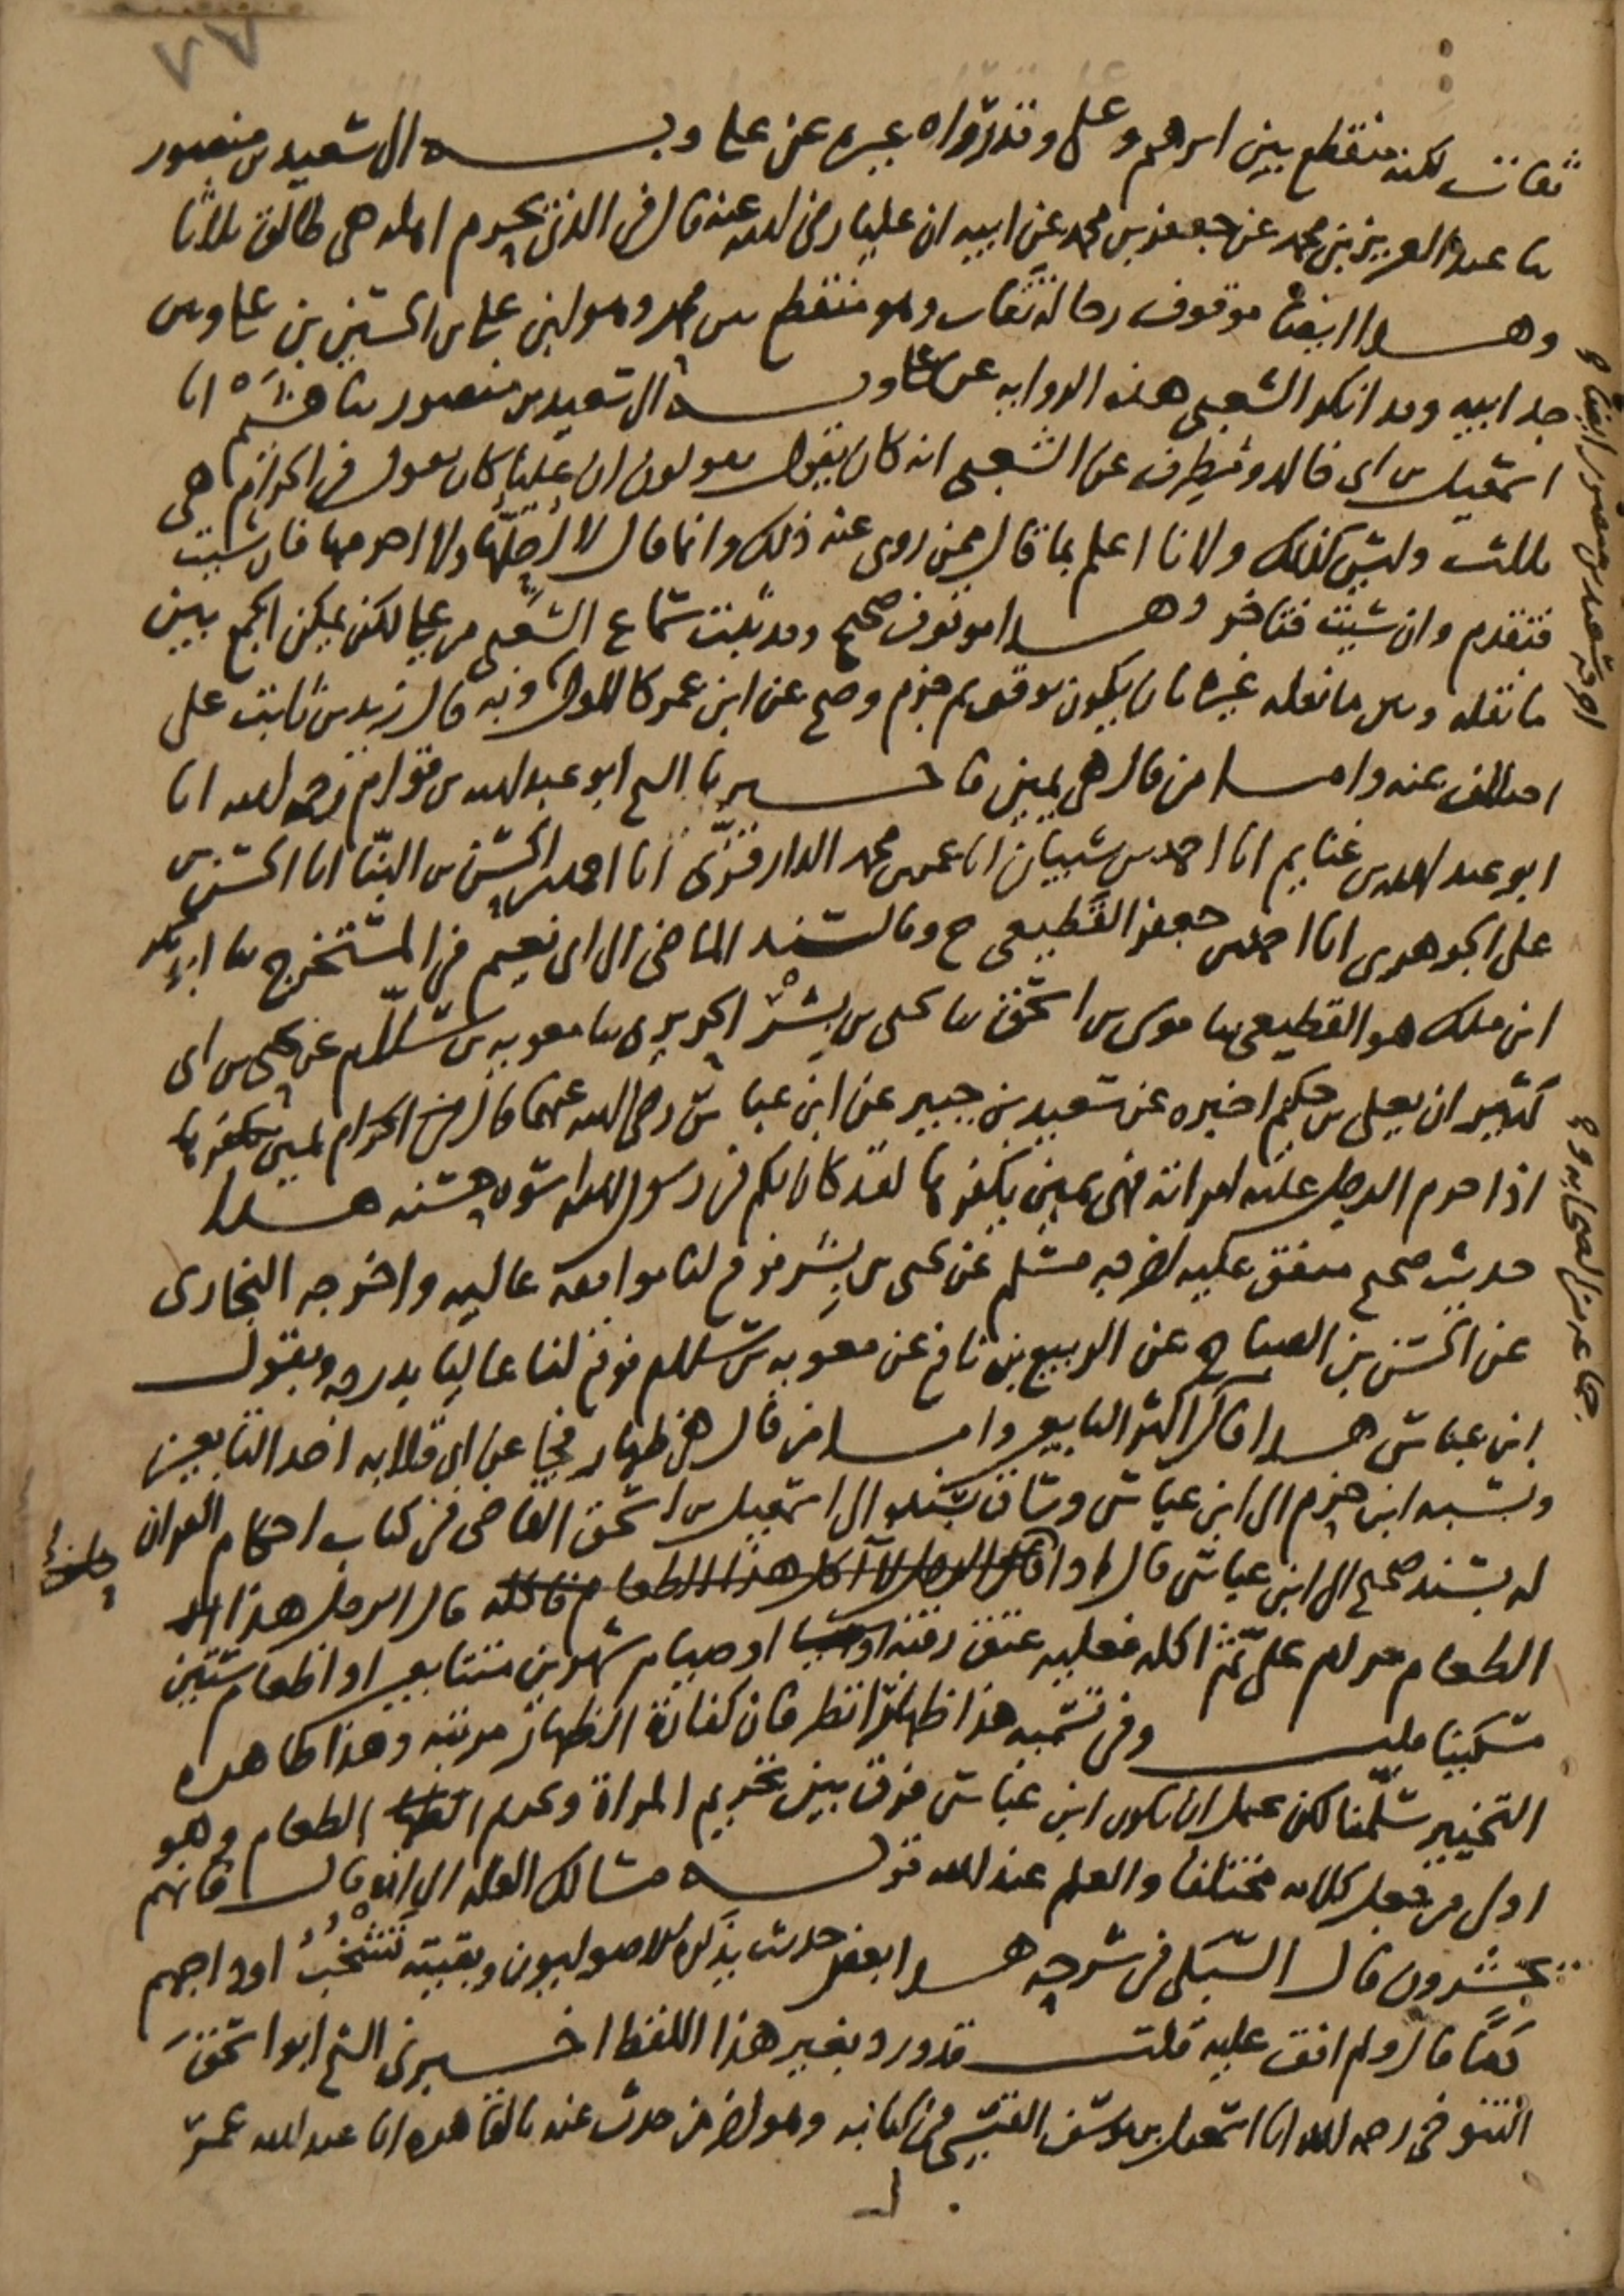 ٧٧
ثقات لكنه منقطع بين ابرهيم وعلي وقد رواه غيره عن علي وبه الى سعيد بن منصور
ثنا عبد العزيز بن محمد عن جعفر بن محمد عن ابيه ان عليا رضى الله عنه قال في الذي يحرم امراته هي طالق ثلاثا
وهذا ايضا موقوف رجاله ثقات وهو منقطع بين محمد وهو ابن علي بن الحسين بن علي وبين
جد ابيه وقد انكر الشعبي هذه الرواية عن علي وبه الى سعيد بن منصور ثنا هشيم انا
اسمعيل بن ابى خالد ومطرف عن الشعبي انه كان يقول يقولون ان عليا كان يقول في الحرام هي
ثلاث وليس كذلك ولانا اعلم بما قال ممن روى عنه ذلك وانما قال لا احلها ولا احرمها فان شيت
فتقدم وان شيت فتاخر وهذا موقوف صحيح وقد ثبت سماع الشعبي من علي لكن يمكن الجمع بين
ما نقله وبين ما نقله غيره بان يكون توقف ثم جزم وصح عن ابن عمر كالاول وبه قال زيد بن ثابت على
اختلاف عنه واما من قال هي يمين فاخبرنا الشيخ ابو عبد الله بن قوام رحمه الله انا
ابو عبد الله بن غنايم انا احمد بن شيبان انا عمر بن محمد الدارقزي انا احمد بن الحسن بن البنا انا الحسن بن
على الجوهرى انا احمد بن جعفر القطيعى ح وبالسند الماضى الى ابى نعيم في المستخرج ثنا ابو بكر
ابن ملك هو القطيعى ثنا موسى بن اسحق ثنا يحيى بن بشر الحريرى ثنا معوية بن سلام عن يحيى بن ابى
كثير ان يعلى بن حكيم اخبره عن سعيد بن جبير عن ابن عباس رضى الله عنهما قال في الحرام يمين يكفرها
اذا حرم الرجل عليه امراته فهى يمين يكفرها لقد كان لكم في رسول الله اسوة حسنة هذا
حديث صحيح متفق عليه اخرجه مسلم عن يحيى بن بشر فوقع لنا موافقة عالية واخرجه البخارى
عن الحسن بن الصباح عن الربيع بن نافع عن معوية بن سلام فوقع لنا عاليا بدرجة وبقول
ابن عباس هذا قال اكثر التابعين واما من قال هي ظهار فجا عن ابى قلابه احد التابعين
ونسبه ابن حزم الى ابن عباس وساق بسنده الى اسمعيل بن اسحق القاضى في كتاب احكام القران
له بسند صحيح الى ابن عباس قال اذا قال الرجل لا آكل هذا الطعام فاكله قال الرجل هذا
الطعام حرام على ثم اكله فعليه عتق رقبة او صيام شهرين متتابعين او اطعام ستين
مسكينا قلت وفي تسمية هذا ظهارا نظر فان كفارة الظهار مرتبة وهذا ظاهره
التخيير سلمنا لكن يحتمل ان يكون ابن عباس فرق بين تحريم المراة وتحريم الطعام وهو
اولى من جعل كلامه مختلفا والعلم عند الله قوله مسالك العلة الى ان قال فانهم
يحشرون قال السبكى في شرحه هذا بعض حديث يذكره الاصوليون وبقيته تشخب اوداجهم
دما قال ولم اقف عليه قلت قد ورد بغير هذا اللفظ اخبرنى الشيخ ابو اسحق
التنوخى رحمه الله انا اسمعيل بن يوسف القيسى في كتابه وهو اخر من حدث عنه بالقاهرة انا عبد الله بن عمر
اخرجه سعيد بن منصور ايضا
جا عن من الصحابة